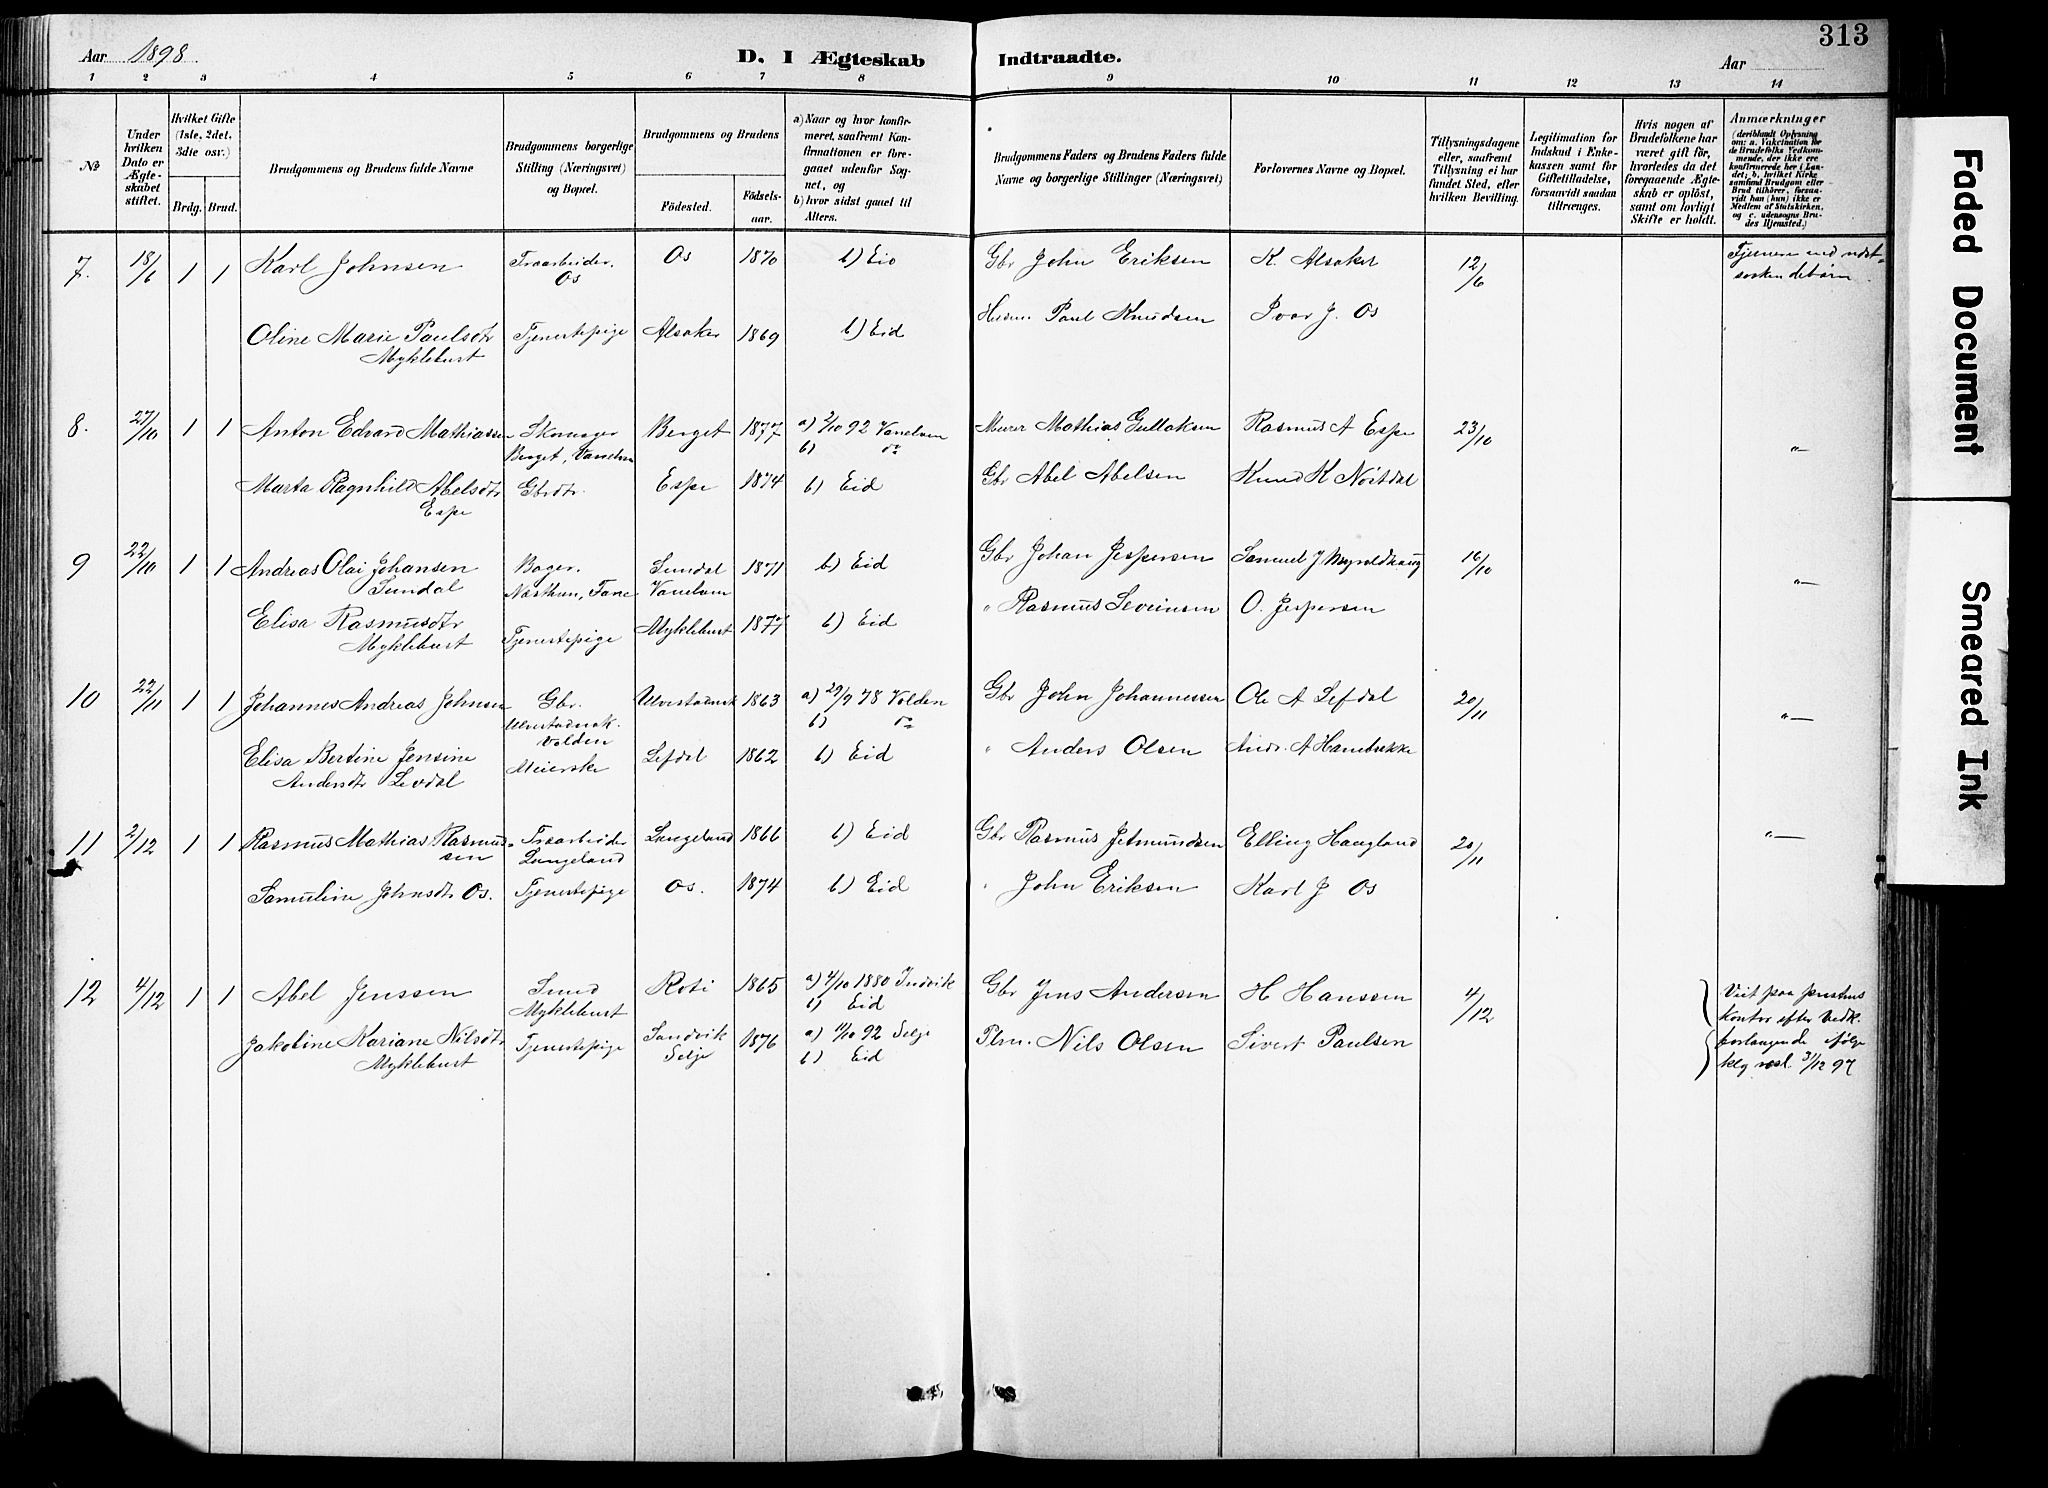 Aar 1898.
D. I Ægteskab Indtraadte.
Aar
313
1 2 3 4 5 6 7 8 9 10 11 12 13 14
No
Under hvilken Dato er Ægteskabet stiftet.
Hvilket Gifte (1ste, 2det, 3die osv.)
Brdg. Brud.
Brudgommens og Brudens fulde Navne
Brudgommens borgerlige Stilling (Næringsvei) og Bopæl.
Brudgommens og Brudens
Födested.
Födselsaar.
a) Naar og hvor konfirmeret, saafremt Konfirmationen er foregaaet udenfor Sognet, og
b) hvor sidst gaaet til Alters.
Brudgommens Faders og Brudens Faders fulde Navne og borgerlige Stillinger (Næringsvei)
Forlovernes Navne og Bopæl.
Tillysningsdagene eller, saafremt Tillysning ei har fundet Sted, efter hvilken Bevilling.
Legitimation for Indskud i Enkekassen samt for Giftetilladelse, forsaavidt saadan tiltrænges.
Hvis nogen af Brudefolkene har været gift för, hvorledes da det foregaaende Ægteskab er oplöst, samt om lovligt Skifte er holdt.
Anmærkninger
(deriblandt Oplysning om: a. Vakcination for de Brudefolks Vedkommende, der ikke ere konfirmerede her i Landet; b. hvilket Kirkesamfund Brudgom eller Brud tilhörer, forsaavidt han (hun) ikke er Medlem af Statskirken, og c. udensogns Brudes Hjemsted.)
7. 18/6 1 1 Karl Johnsen Træarbeider. Os Os 1870 b) Eid Gbr John Eriksen K. Alsaker 12/6
Oline Marie Paulsdtr Myklebust Tjenestepige Alsaker 1869 b) Eid Husm. Paul Knudsen Ivar J. Os
8. 27/10 1 1 Anton Edvard Mathiassen Skomager Berget, Vanelven Berget 1877 a) 2/10 92 Vanelven b) do Murer Mathias Gullaksen Rasmus A Espe 23/10 "
Marta Ragnhild Abelsdtr Espe Gbrdtr. Espe 1874 b) Eid Gbr Abel Abelsen Knud K Nöstdal
9 22/10 1 1 Andreas Olai Johansen Sundal Bager. Næsttun, Fane Sundal Vanelven 1871 b) Eid Gbr Johan Jespersen Samuel J Myroldhaug 16/10 "
Elisa Rasmusdtr Myklebust Tjenestepige Myklebust 1877 b) Eid " Rasmus Severinsen O. Jespersen
10 22/11 1 1 Johannes Andreas Johnsen Gbr. Ulvestadnak. Volden Ulvestadnak 1863 a) 29/9 78 Volden b) do Gbr John Johannessen Ole A Lefdal 20/11 "
Elisa Bertine Jensine Andersdtr Levdal Meierske Lefdal 1862 b) Eid " Anders Olsen Andr. A Hanebrekke
11 2/12 1 1 Rasmus Mathias Rasmussen Træarbeider Langeland Langeland 1866 b) Eid Gbr Rasmus Jetmundsen Elling Haugland 20/11 "
Samuline Johnsdtr Os. Tjenestepige Os. 1874 b) Eid " John Eriksen Karl J Os
12 4/12 1 1 Abel Jenssen Smed Myklebust Roti 1865 a) 4/10 1880 Indvik b) Eid Gbr Jens Andersen H Hanssen 4/12
Jakobine Kariane Nilsdtr Myklebust Tjenestepige Sandvik Selje 1876 a) 1/10 92 Selje b) Eid Plm. Nils Olsen Sivert Paulsen
Viet paa prestens kontor efter Vedk. forlangende ifølge kg resl. 31/12 97
Faded Document
Smeared Ink